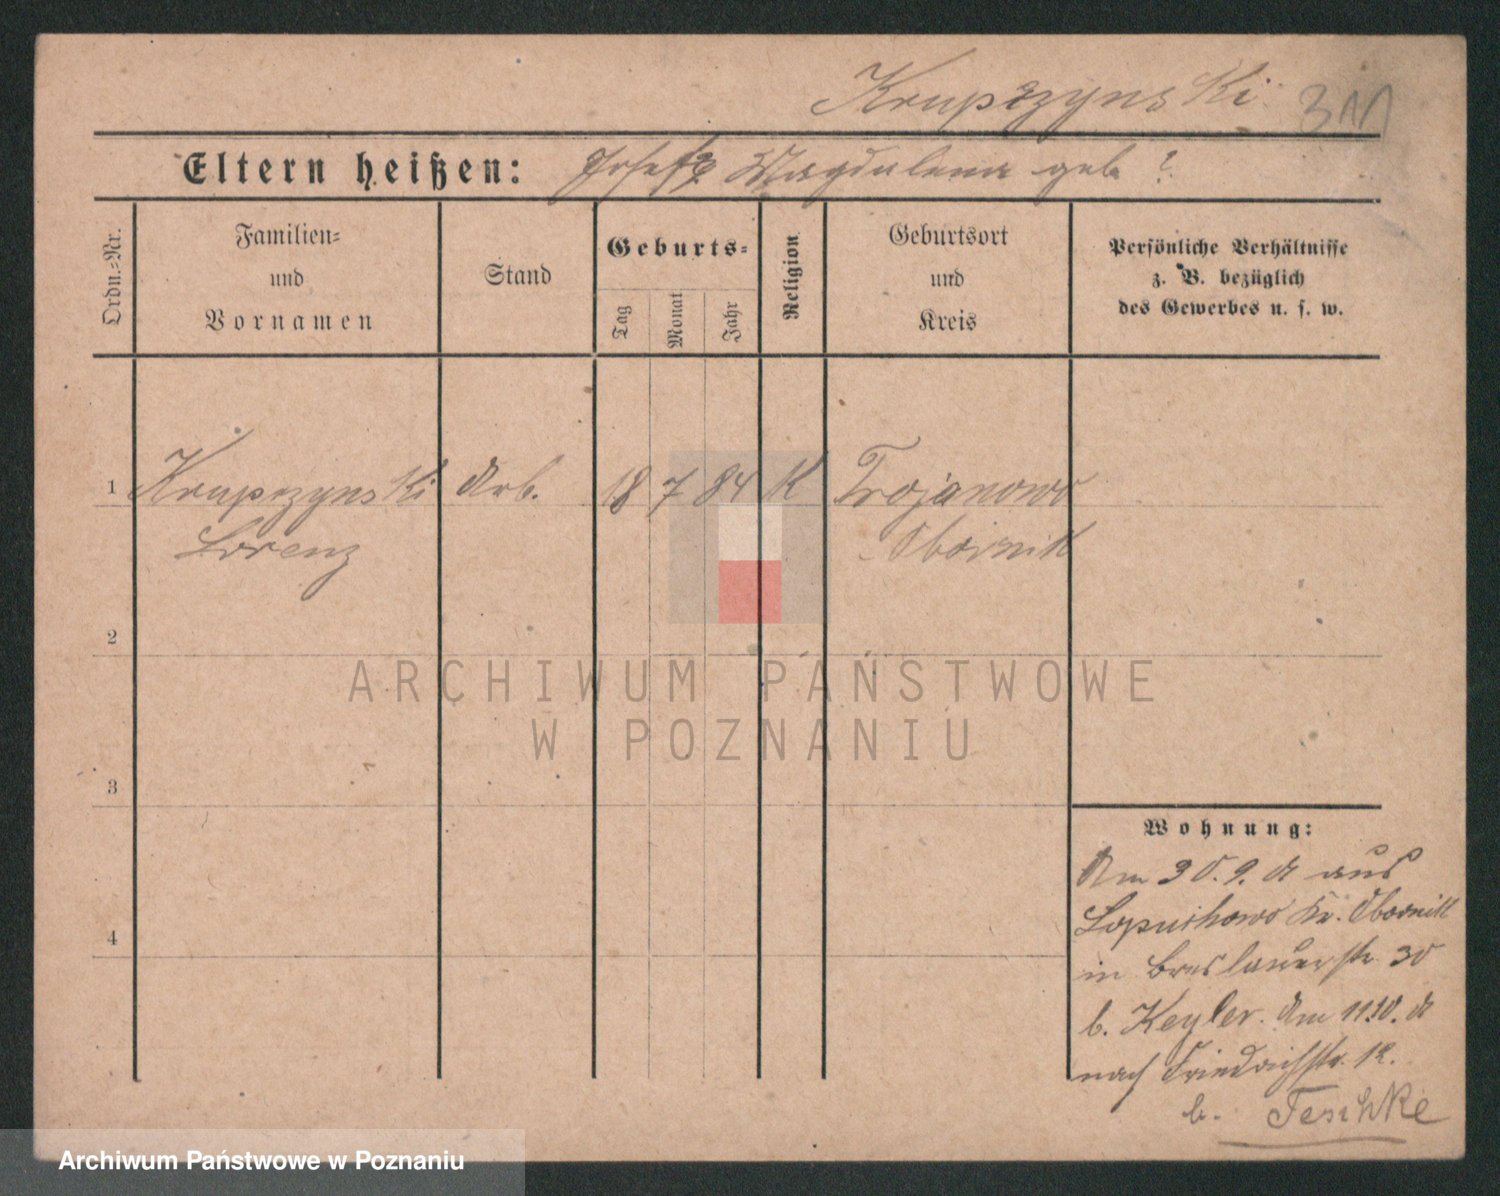 Krupczynski 311
Eltern heißen: Josef & Magdalena geb ?
Ordn.=Nr.
Familien=
und
Vornamen
Stand
Geburts=
Tag
Monat
Jahr
Religion
Geburtsort
und
Kreis
Persönliche Verhältnisse
z. B. bezüglich
des Gewerbes u. s. w.
1 Krupczynski Arb. 18 7 84 K Trojanowo
Lorenz Obornik
2
3
4
Wohnung:
Am 30. 9. aus
Lopuchowo Kr. Obornik
in Breslauerstr. 30
b. Keyler. Am 11.10.
nach Friedrichstr. 12.
b. Feschke
ARCHIWUM PAŃSTWOWE
W POZNANIU
Archiwum Państwowe w Poznaniu